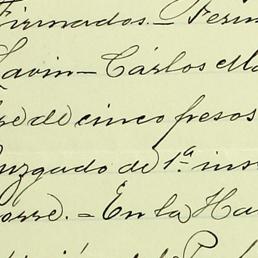 Firmados.- Ferm
Lavin- Cárlos Ma
re de cinco pesos
uzgado de 1ª. ins
orre.- En la Ha